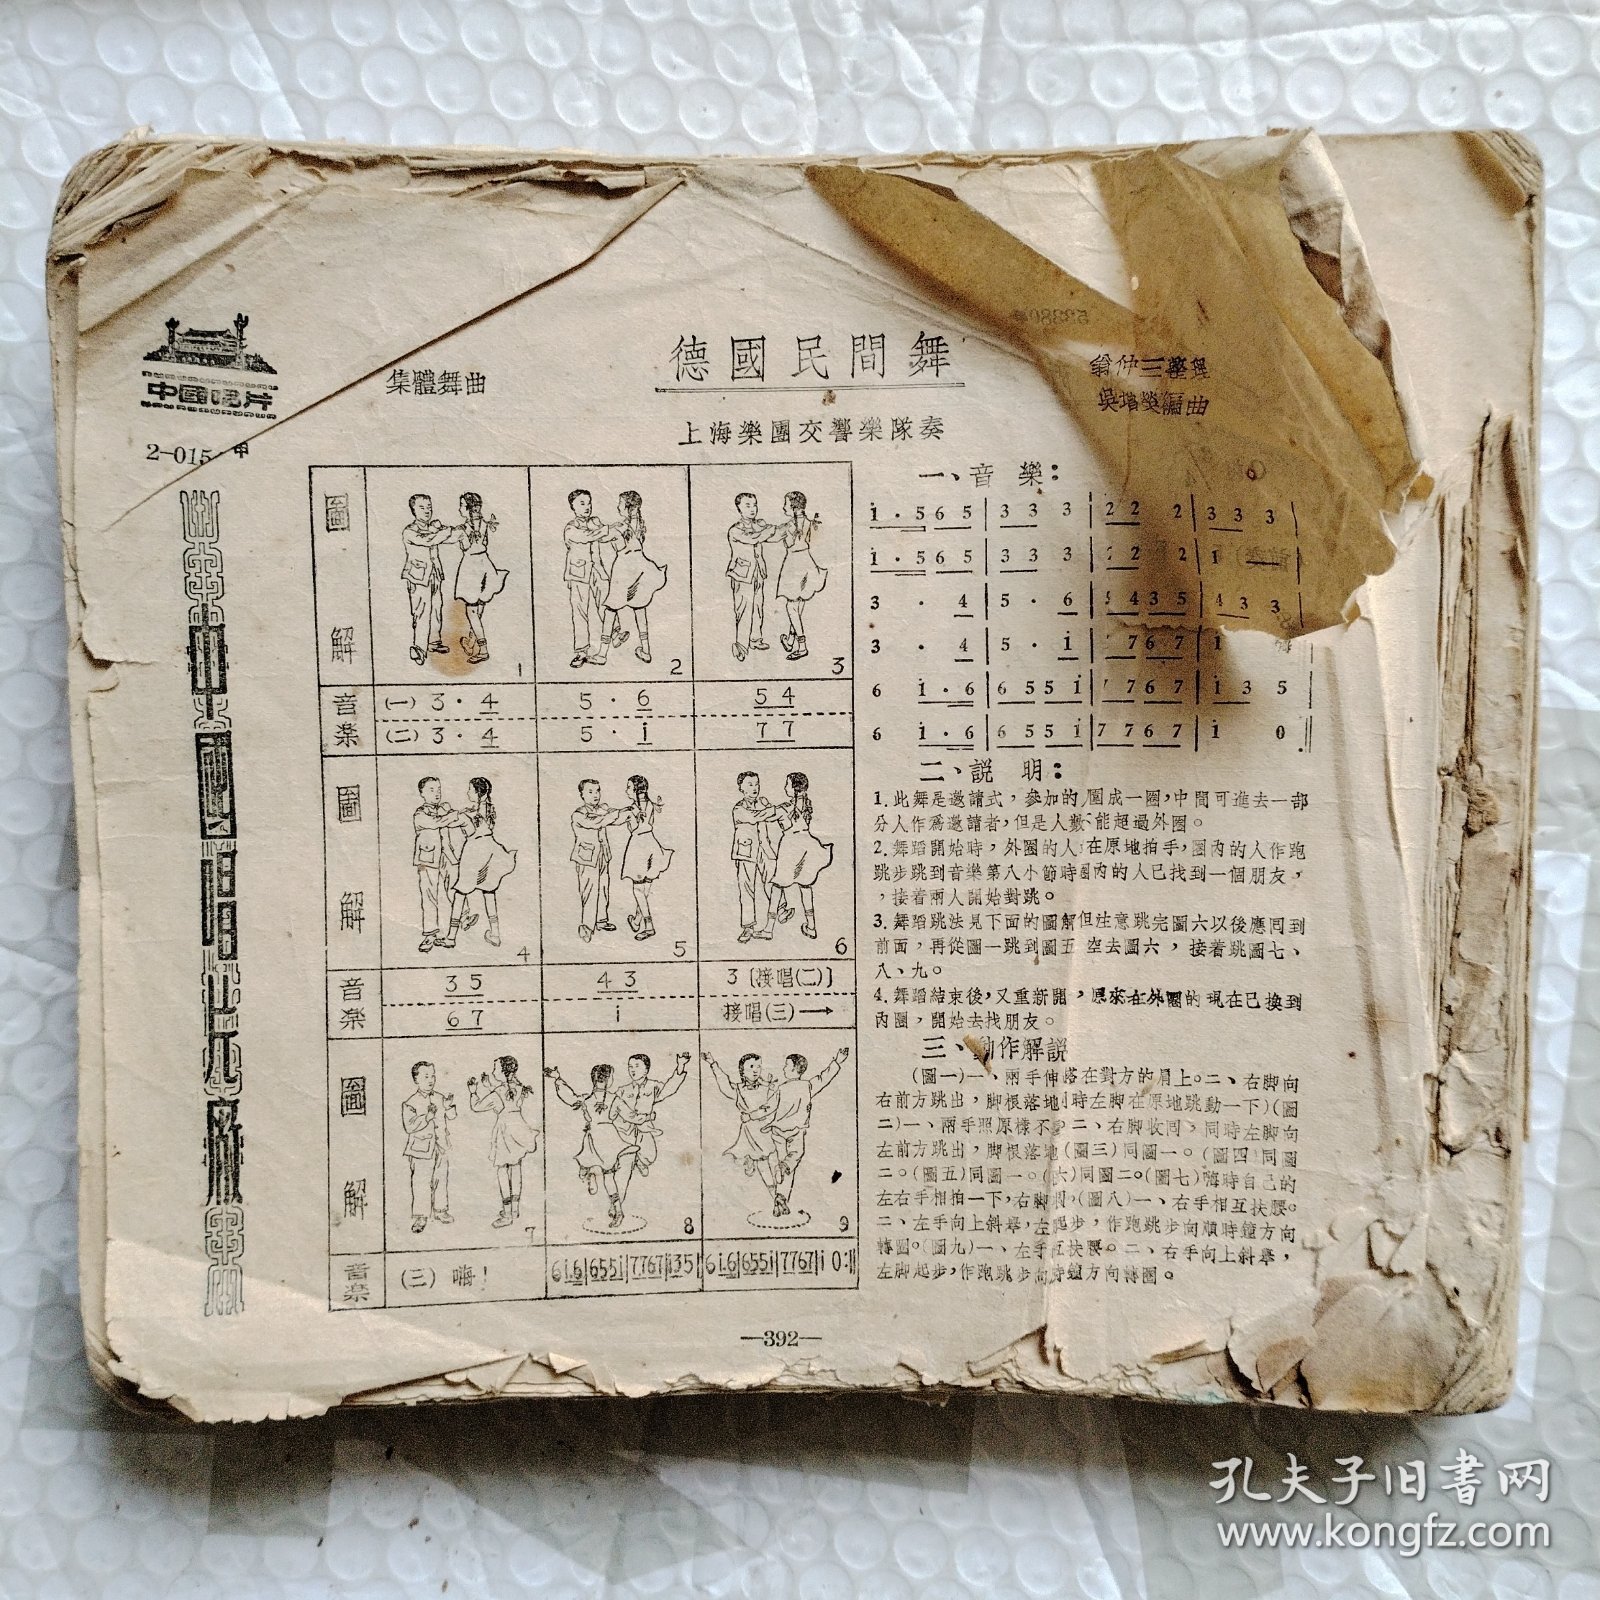 中國唱片
2-015 甲
集體舞曲
德國民間舞
上海樂團交響樂隊奏
中國唱片廠
圖解
1
2
3
音樂
(一) 3 · 4
5 · 6
5 4
(二) 3 · 4
5 · i
7 7
圖解
4
5
6
音樂
3 5
4 3
3 [接唱(二)]
6 7
i
接唱(三)→
圖解
7
8
9
音樂
(三) 嗨!
6 i·6|655i|7767|i35|
6 i·6|655i|7767|i 0:||
一、音 樂:
i · 5 6 5 | 3 3 3 | 2 2 2 | 3 3 3 |
i · 5 6 5 | 3 3 3 | 2 2 2 | 1
3 · 4 | 5 · 6 | 5 4 3 5 | 4 3 3
3 · 4 | 5 · i | 7 7 6 7 | 1
6 i · 6 | 6 5 5 i | 7 7 6 7 | i 3 5
6 i · 6 | 6 5 5 i | 7 7 6 7 | i 0 :||
二、説 明:
1.此舞是邀請式,參加的圍成一圈,中間可進去一部
分人作爲邀請者,但是人數不能超過外圈。
2.舞蹈開始時,外圈的人在原地拍手,圈內的人作跑
跳步跳到音樂第八小節時圈內的人已找到一個朋友,
,接着兩人開始對跳。
3.舞蹈跳法見下面的圖解但注意跳完圖六以後應回到
前面,再從圖一跳到圖五空去圖六,接着跳圖七、
八、九。
4.舞蹈結束後,又重新開,原來在外圈的現在已換到
內圈,開始去找朋友。
三、動作解説
(圖一)一、兩手伸搭在對方的肩上。二、右脚向
右前方跳出,脚根落地同時左脚在原地跳動一下)(圖
二)一、兩手照原樣不。二、右脚收回,同時左脚向
左前方跳出,脚根落地(圖三)同圖一。(圖四)同圖
二。(圖五)同圖一。(六)同圖二。(圖七)嗨時自己的
左右手相拍一下,右脚,(圖八)一、右手相互扶腰。
二、左手向上斜舉,左起步,作跑跳步向順時鐘方向
轉圈。(圖九)一、左手互扶腰。二、右手向上斜舉,
左脚起步,作跑跳步向時鐘方向轉圈。
—392—
孔夫子旧书网
www.kongfz.com